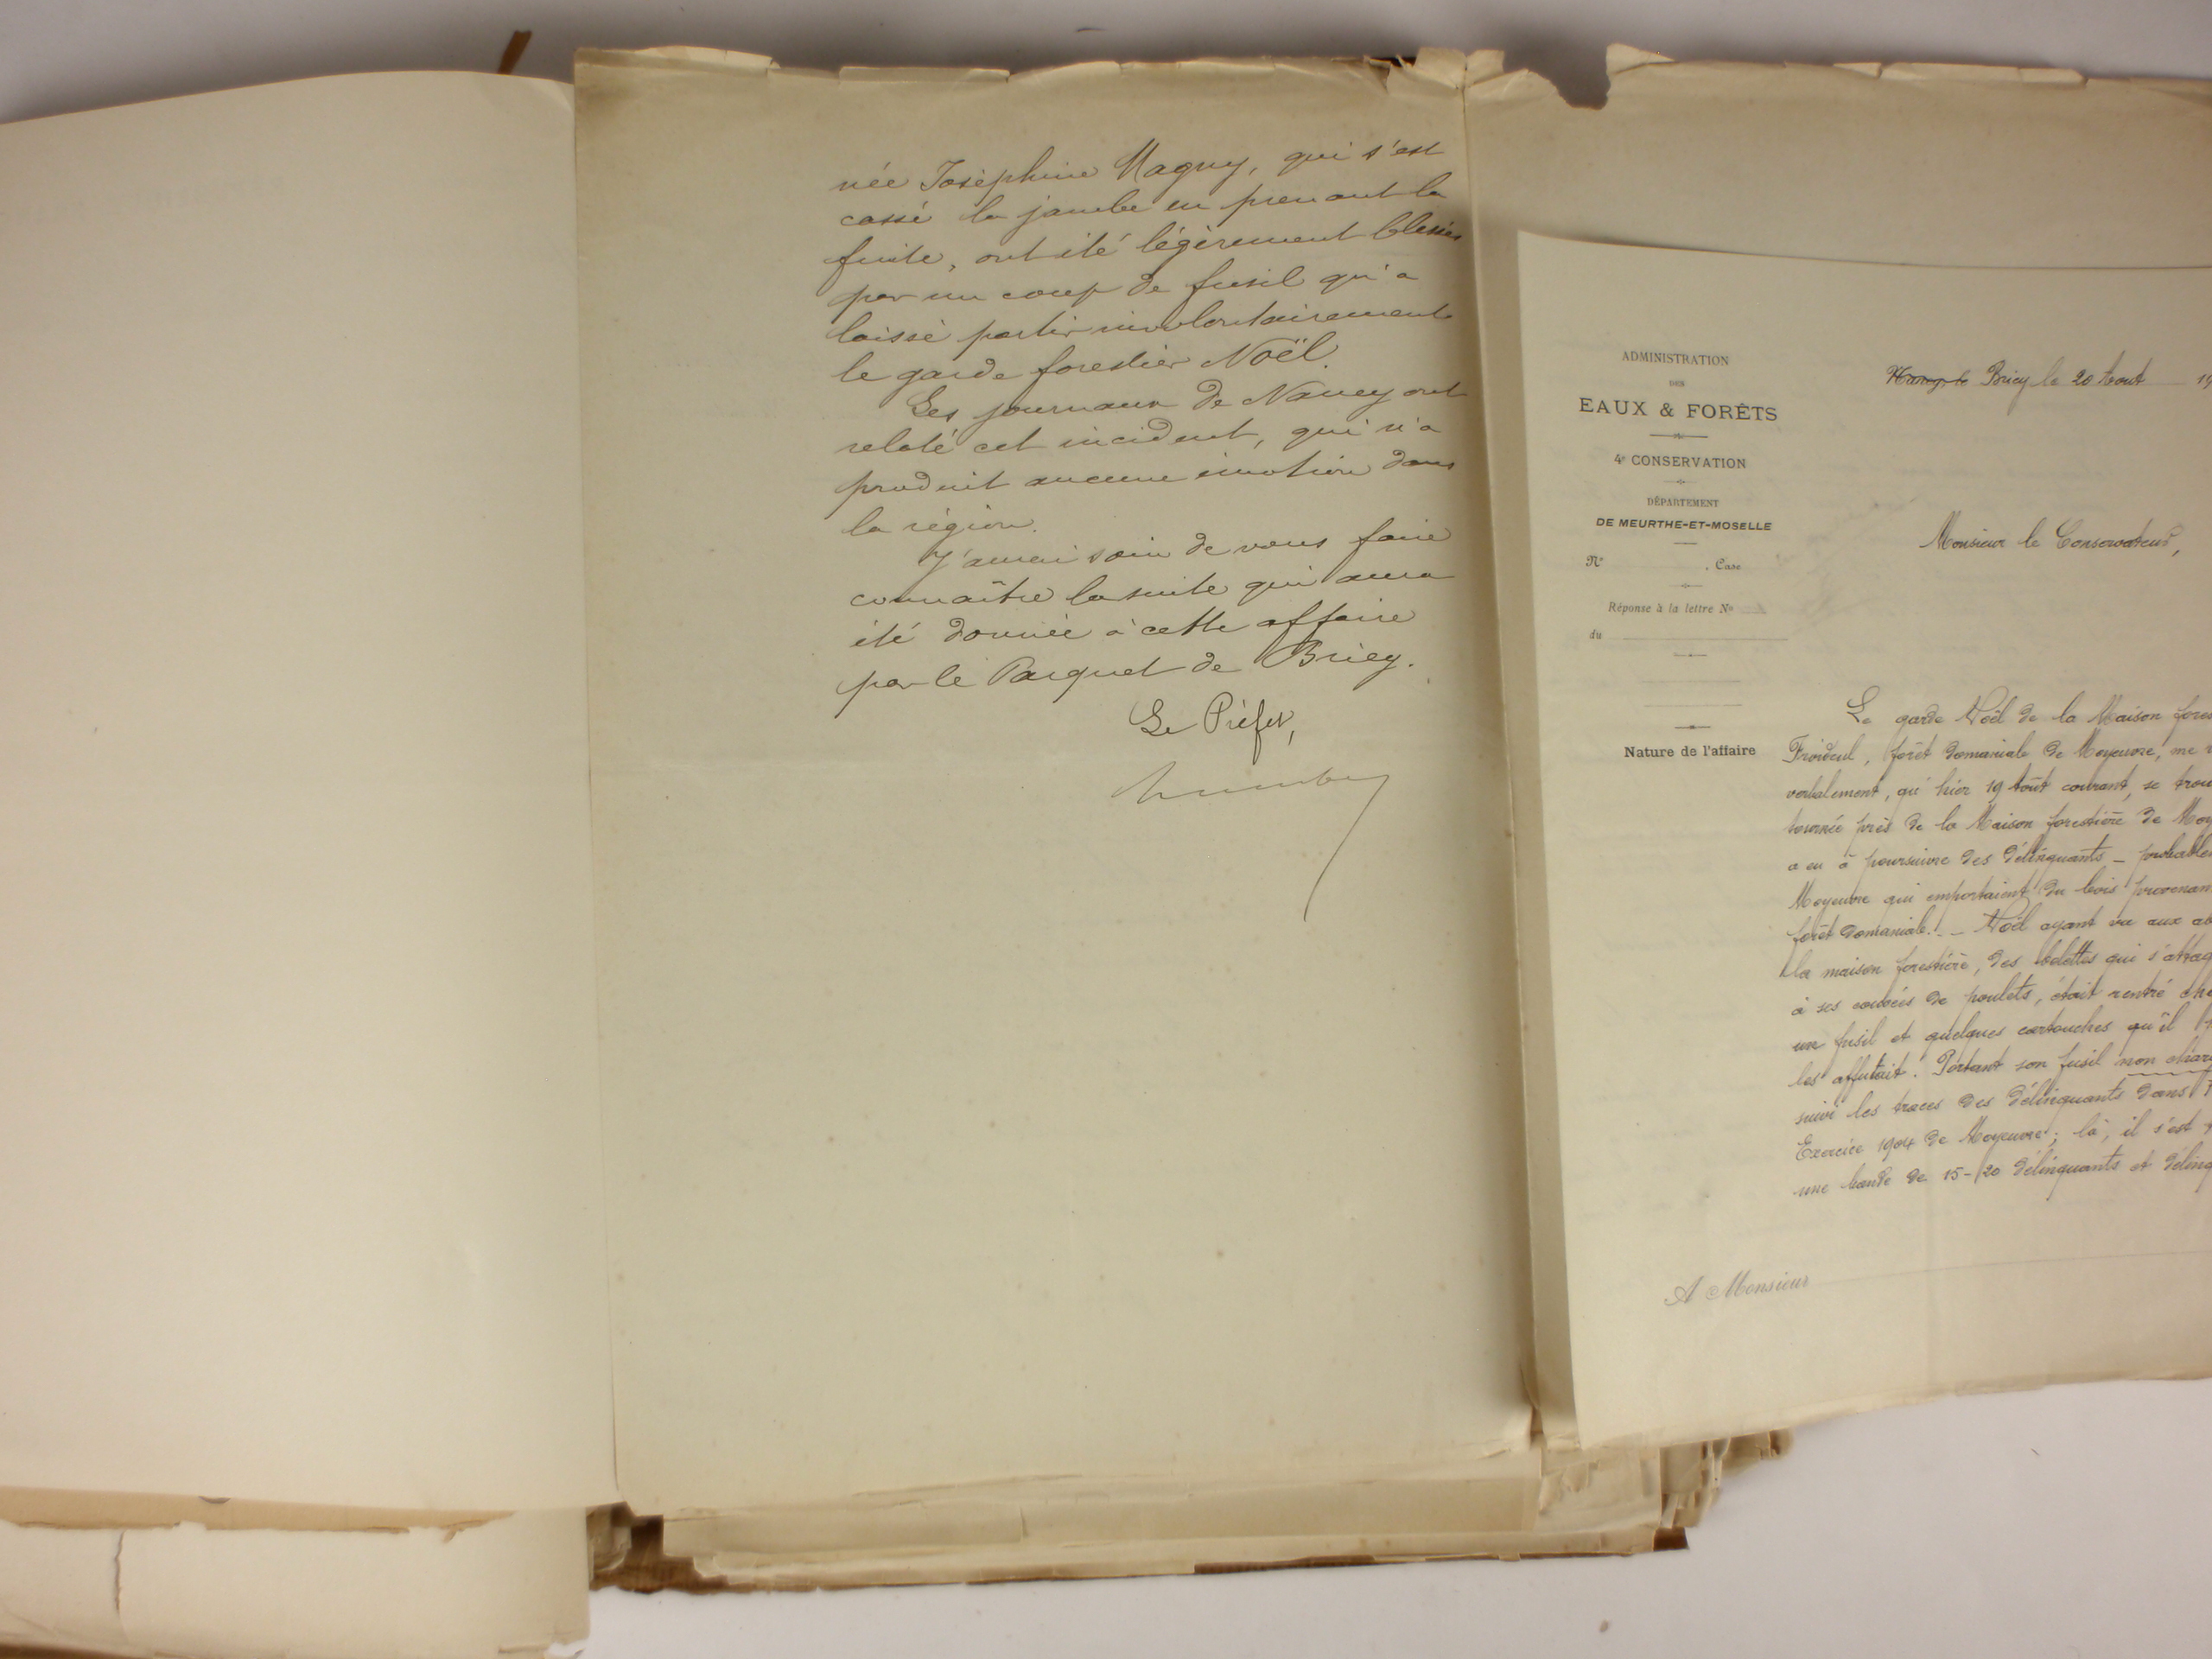 née Josèphine Magny, qui s'est
cassé la jambe en prenant la
fuite, ont été légèrement blessés
par un coup de fusil qu'a
laissé partir involontairement
le garde forestier Noël.
Les journaux de Nancy ont
relaté cet incident, qui n'a
produit aucune émotion dans
la région.
J'aurai soin de vous faire
connaître la suite qui aura
été donnée à cette affaire
par le Parquet de Briey.
Le Préfet,
ADMINISTRATION
DES
EAUX & FORÊTS
4e CONSERVATION
DÉPARTEMENT
DE MEURTHE-ET-MOSELLE
No , Case
Réponse à la lettre No
du
Nature de l'affaire
Briey le 20 Aout 19
Monsieur le Conservateur,
Le garde Noël de la Maison fores
Froideul, forêt domaniale de Moyeuvre, me
verbalement, qu'hier 19 Août courant, se trou
tournée près de la Maison forestière de Moy
a eu à poursuivre des délinquants – probable
Moyeuvre qui emportaient du bois provenan
forêt domaniale. – Noël ayant vu aux ab
la maison forestière, des belettes qui s'attaq
à ses couvées de poulets, était rentré che
un fusil et quelques cartouches qu'il
les affutait. Portant son fusil non char
suivi les traces des délinquants dans
Exercice 1904 de Moyeuvre; là, il s'est
une bande de 15-20 délinquants et délinq
A Monsieur